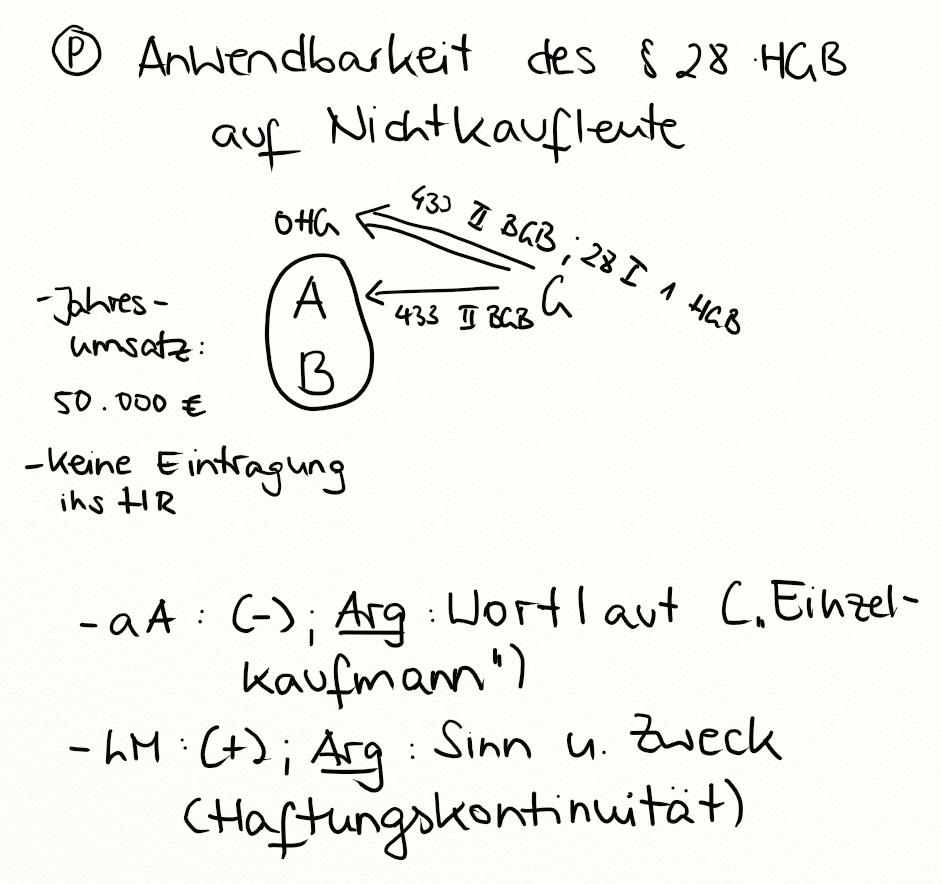 Ⓟ Anwendbarkeit des § 28 HGB
auf Nichtkaufleute
433 II BGB ; 28 I 1 HGB
OHG
A
G
433 II BGB
B
- Jahres-
umsatz:
50.000 €
- keine Eintragung
ins HR
- aA : (-) ; Arg : Wortlaut („Einzel-
kaufmann")
- hM : (+) ; Arg : Sinn u. Zweck
(Haftungskontinuität)